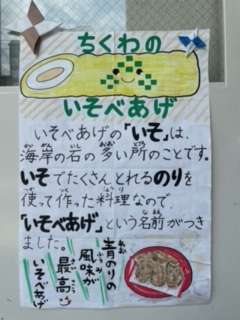 ちくわの
いそべあげ
いそべあげの「いそ」は、
海岸の石の多い所のことです。
いそでたくさんとれるのりを
使って作った料理なので、
「いそべあげ」という名前がつき
ました。
青のりの
風味が
最高
いそべあげ